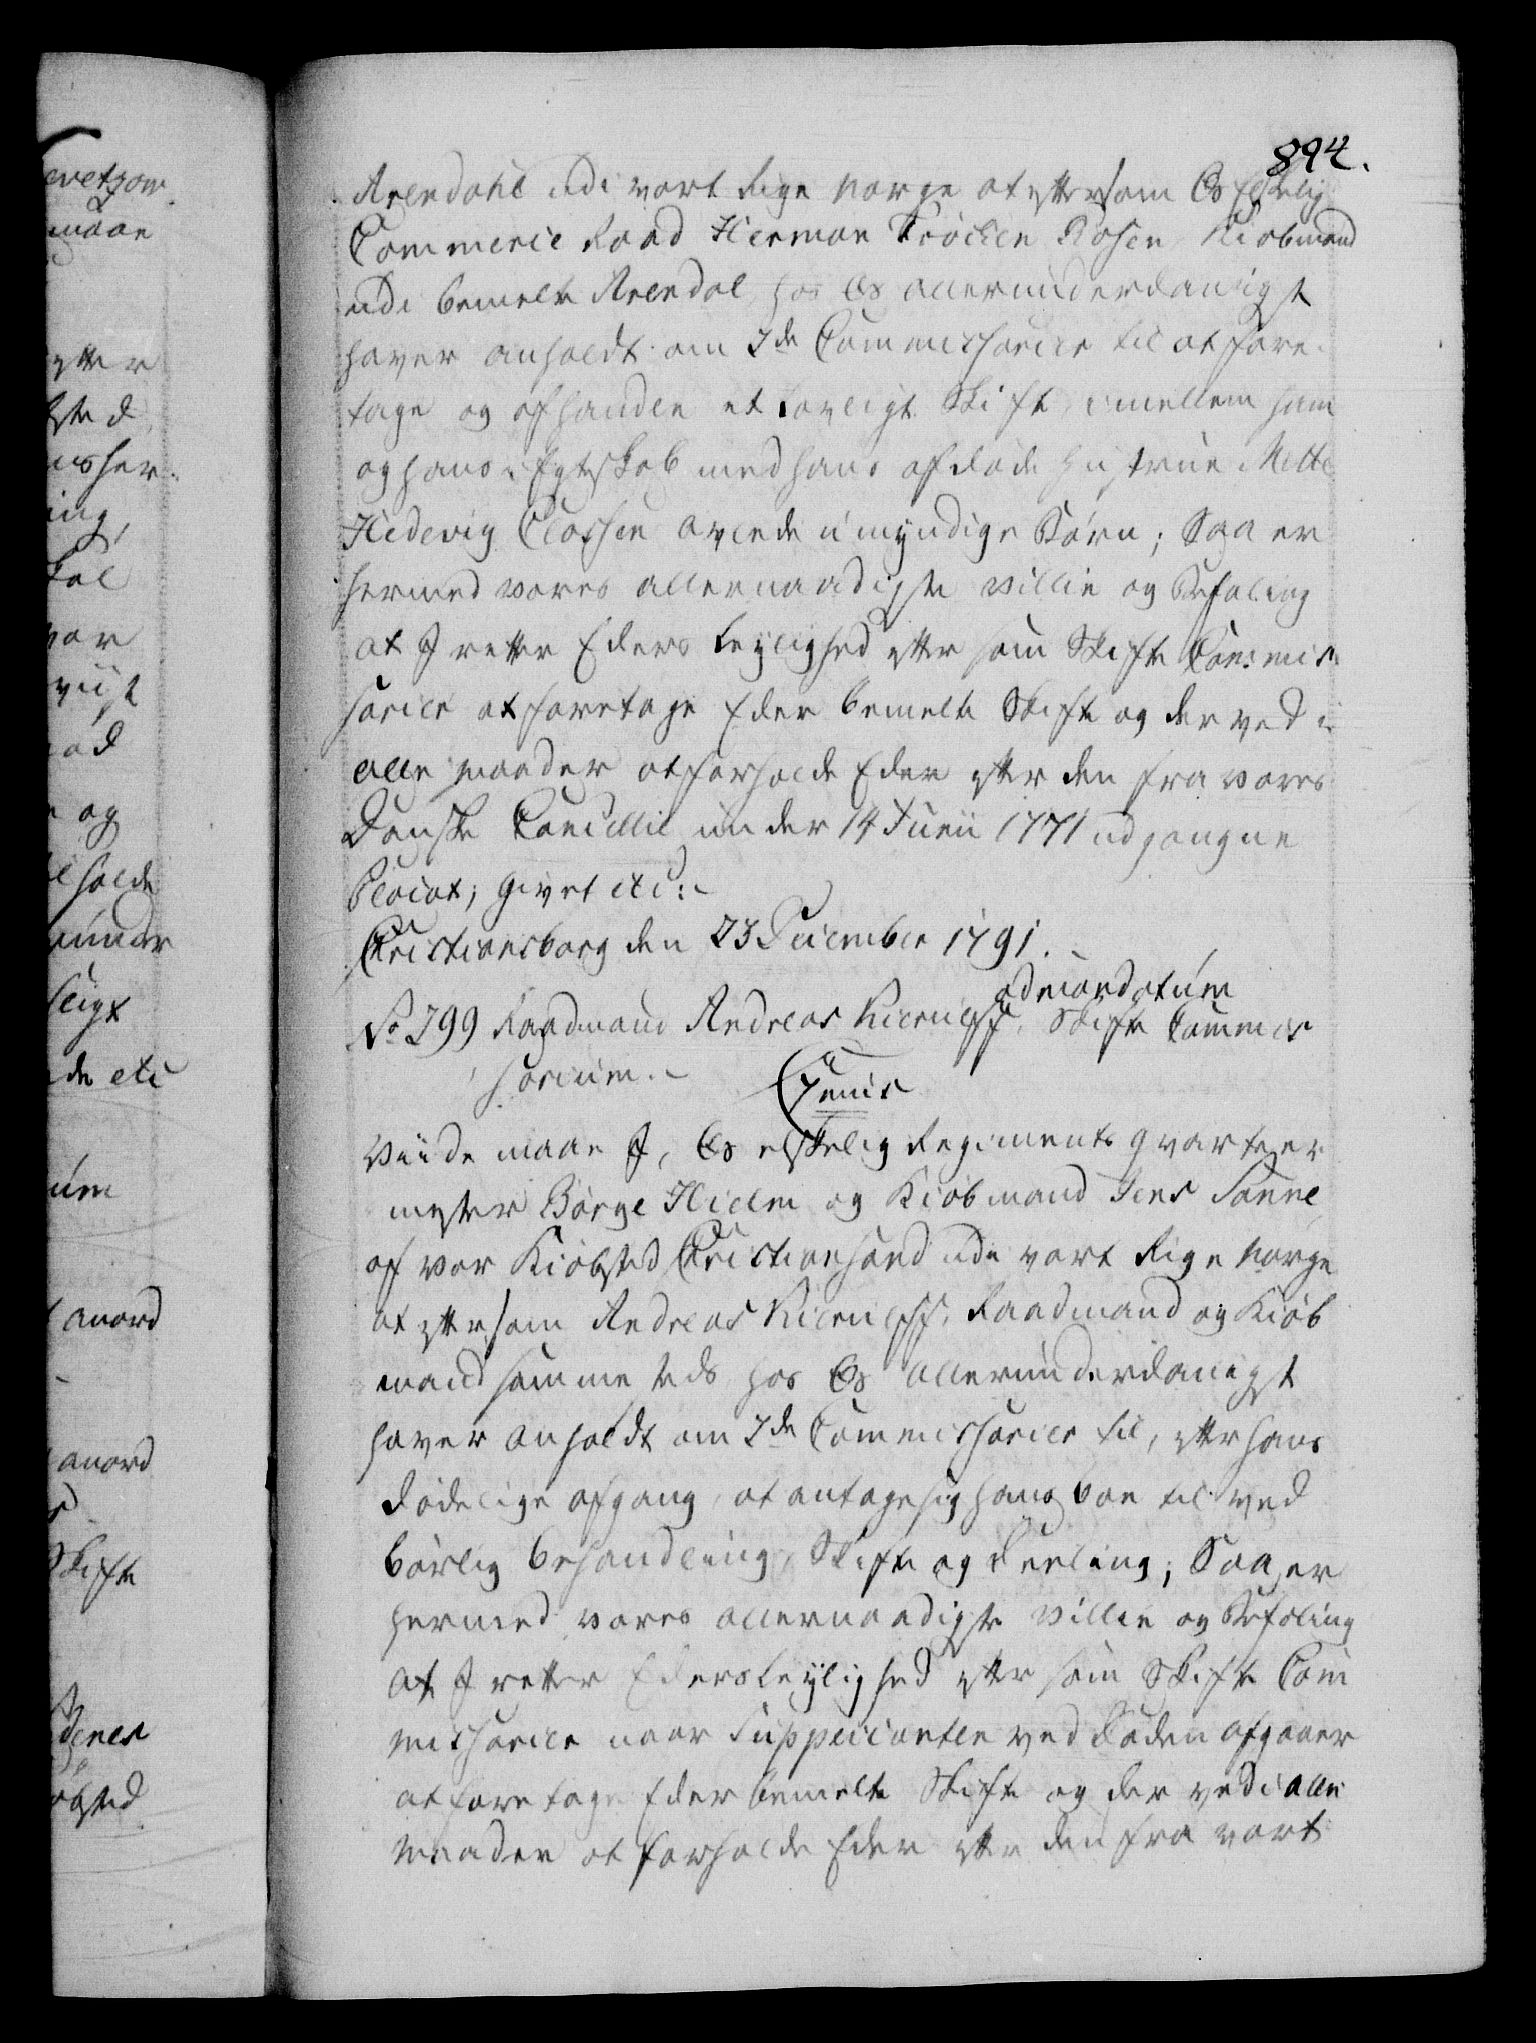 894.
Arendahl udi vort Rige Norge at eftersom Os Elskelig
Commerce Raad Herman Kiøbmand
udi bemelte Arendal, hos Os allerunderdanigst
haver anholdt om 2de Commissarier til at fore-
tage og afhandle et lovligt Skifte imellem ham
og hans i Egteskab med hans afdøde Hustrue Mette
Hedevig Classen avlede umyndige Børn; Saa er
hermed vores allernaadigste Villie og Befaling
at I retter Eders Leylighed efter som Skifte Commis-
sarier at foretage Eder bemelte Skifte og derved i
alle maader at forholde Eder efter den fra vores
Danske Cancellie under 14 Junii 1771 udgangne
Placat; Givet etc:-
Christiansborg den 23 December 1791.
ad mandatum
No 799 Raadmand Andreas Kierulff, Skifte Commis
sarium.-
C 7enis
Viide maae I, Os elskelig Regiments qvarteer
mester Børge Hielm og Kiøbmand Jens Sanne
af vor Kiøbsted Christiansand udi vort Rige Norge
at eftersom Andreas Kierulff, Raadmand og Kiøb
mand sammesteds hos Os allerunderdanigst
haver anholdt om 2de Commissarier til, efter hans
dødelige afgang, at antage sig hans Boe til ved
børlig behandling, Skifte og deeling; Saa er
hermed vores allernaadigste Villie og Befaling
at I retter Eders Leylighed efter som Skifte Com
missarier naar Supplicanten ved Døden afgaaer
at foretage Eder bemelte Skifte og derved i alle
Maader at forholde Eder efter den fra vort